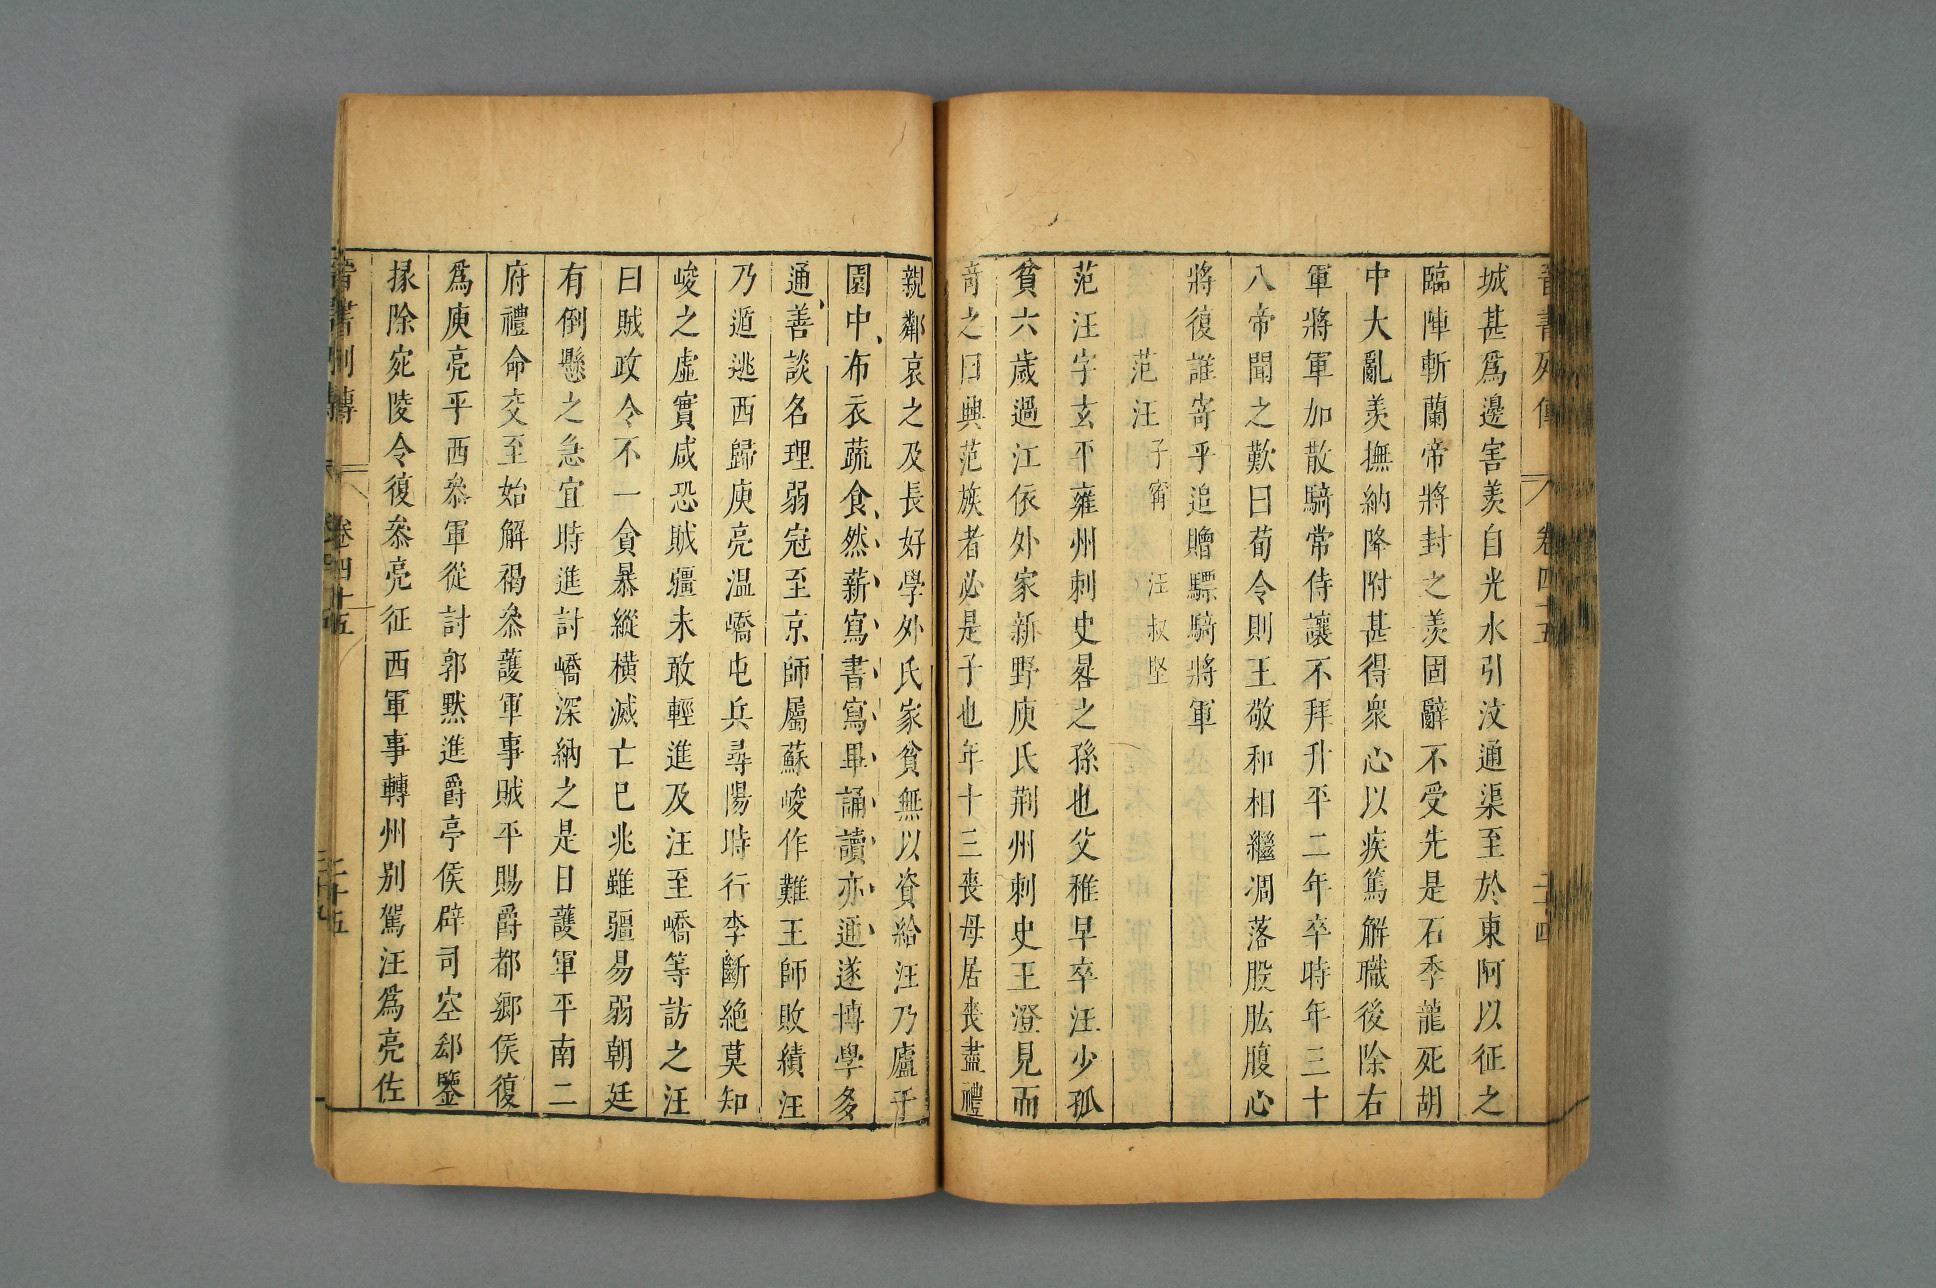 晉書列傳 卷四十五 二十四
城甚爲邊害羨自光水引汶通渠至於東阿以征之
臨陣斬蘭帝將封之羨固辭不受先是石季龍死胡
中大亂羨撫納降附甚得衆心以疾篤解職後除右
軍將軍加散騎常侍讓不拜升平二年卒時年三十
八帝聞之歎曰荀令則王敬和相繼凋落股肱腹心
將復誰寄乎追贈驃騎將軍
范汪 子甯 汪叔堅
范汪字玄平雍州刺史晷之孫也父稚早卒汪少孤
貧六歲過江依外家新野庾氏荆州刺史王澄見而
竒之曰興范族者必是子也年十三喪母居喪盡禮
親鄰哀之及長好學外氏家貧無以資給汪乃廬于
園中布衣蔬食然薪寫書寫畢誦讀亦遍遂博學多
通善談名理弱冠至京師屬蘇峻作難王師敗績汪
乃遁逃西歸庾亮温嶠屯兵尋陽時行李斷絶莫知
峻之虛實咸恐賊彊未敢輕進及汪至嶠等訪之汪
曰賊政令不一貪暴縱横滅亡已兆雖彊易弱朝廷
有倒懸之急宜時進討嶠深納之是日護軍平南二
府禮命交至始解褐叅護軍事賊平賜爵都鄉侯復
爲庾亮平西叅軍從討郭黙進爵亭侯辟司空郄鑒
掾除宛陵令復叅亮征西軍事轉州别駕汪爲亮佐
晉書列傳 卷四十五 二十五